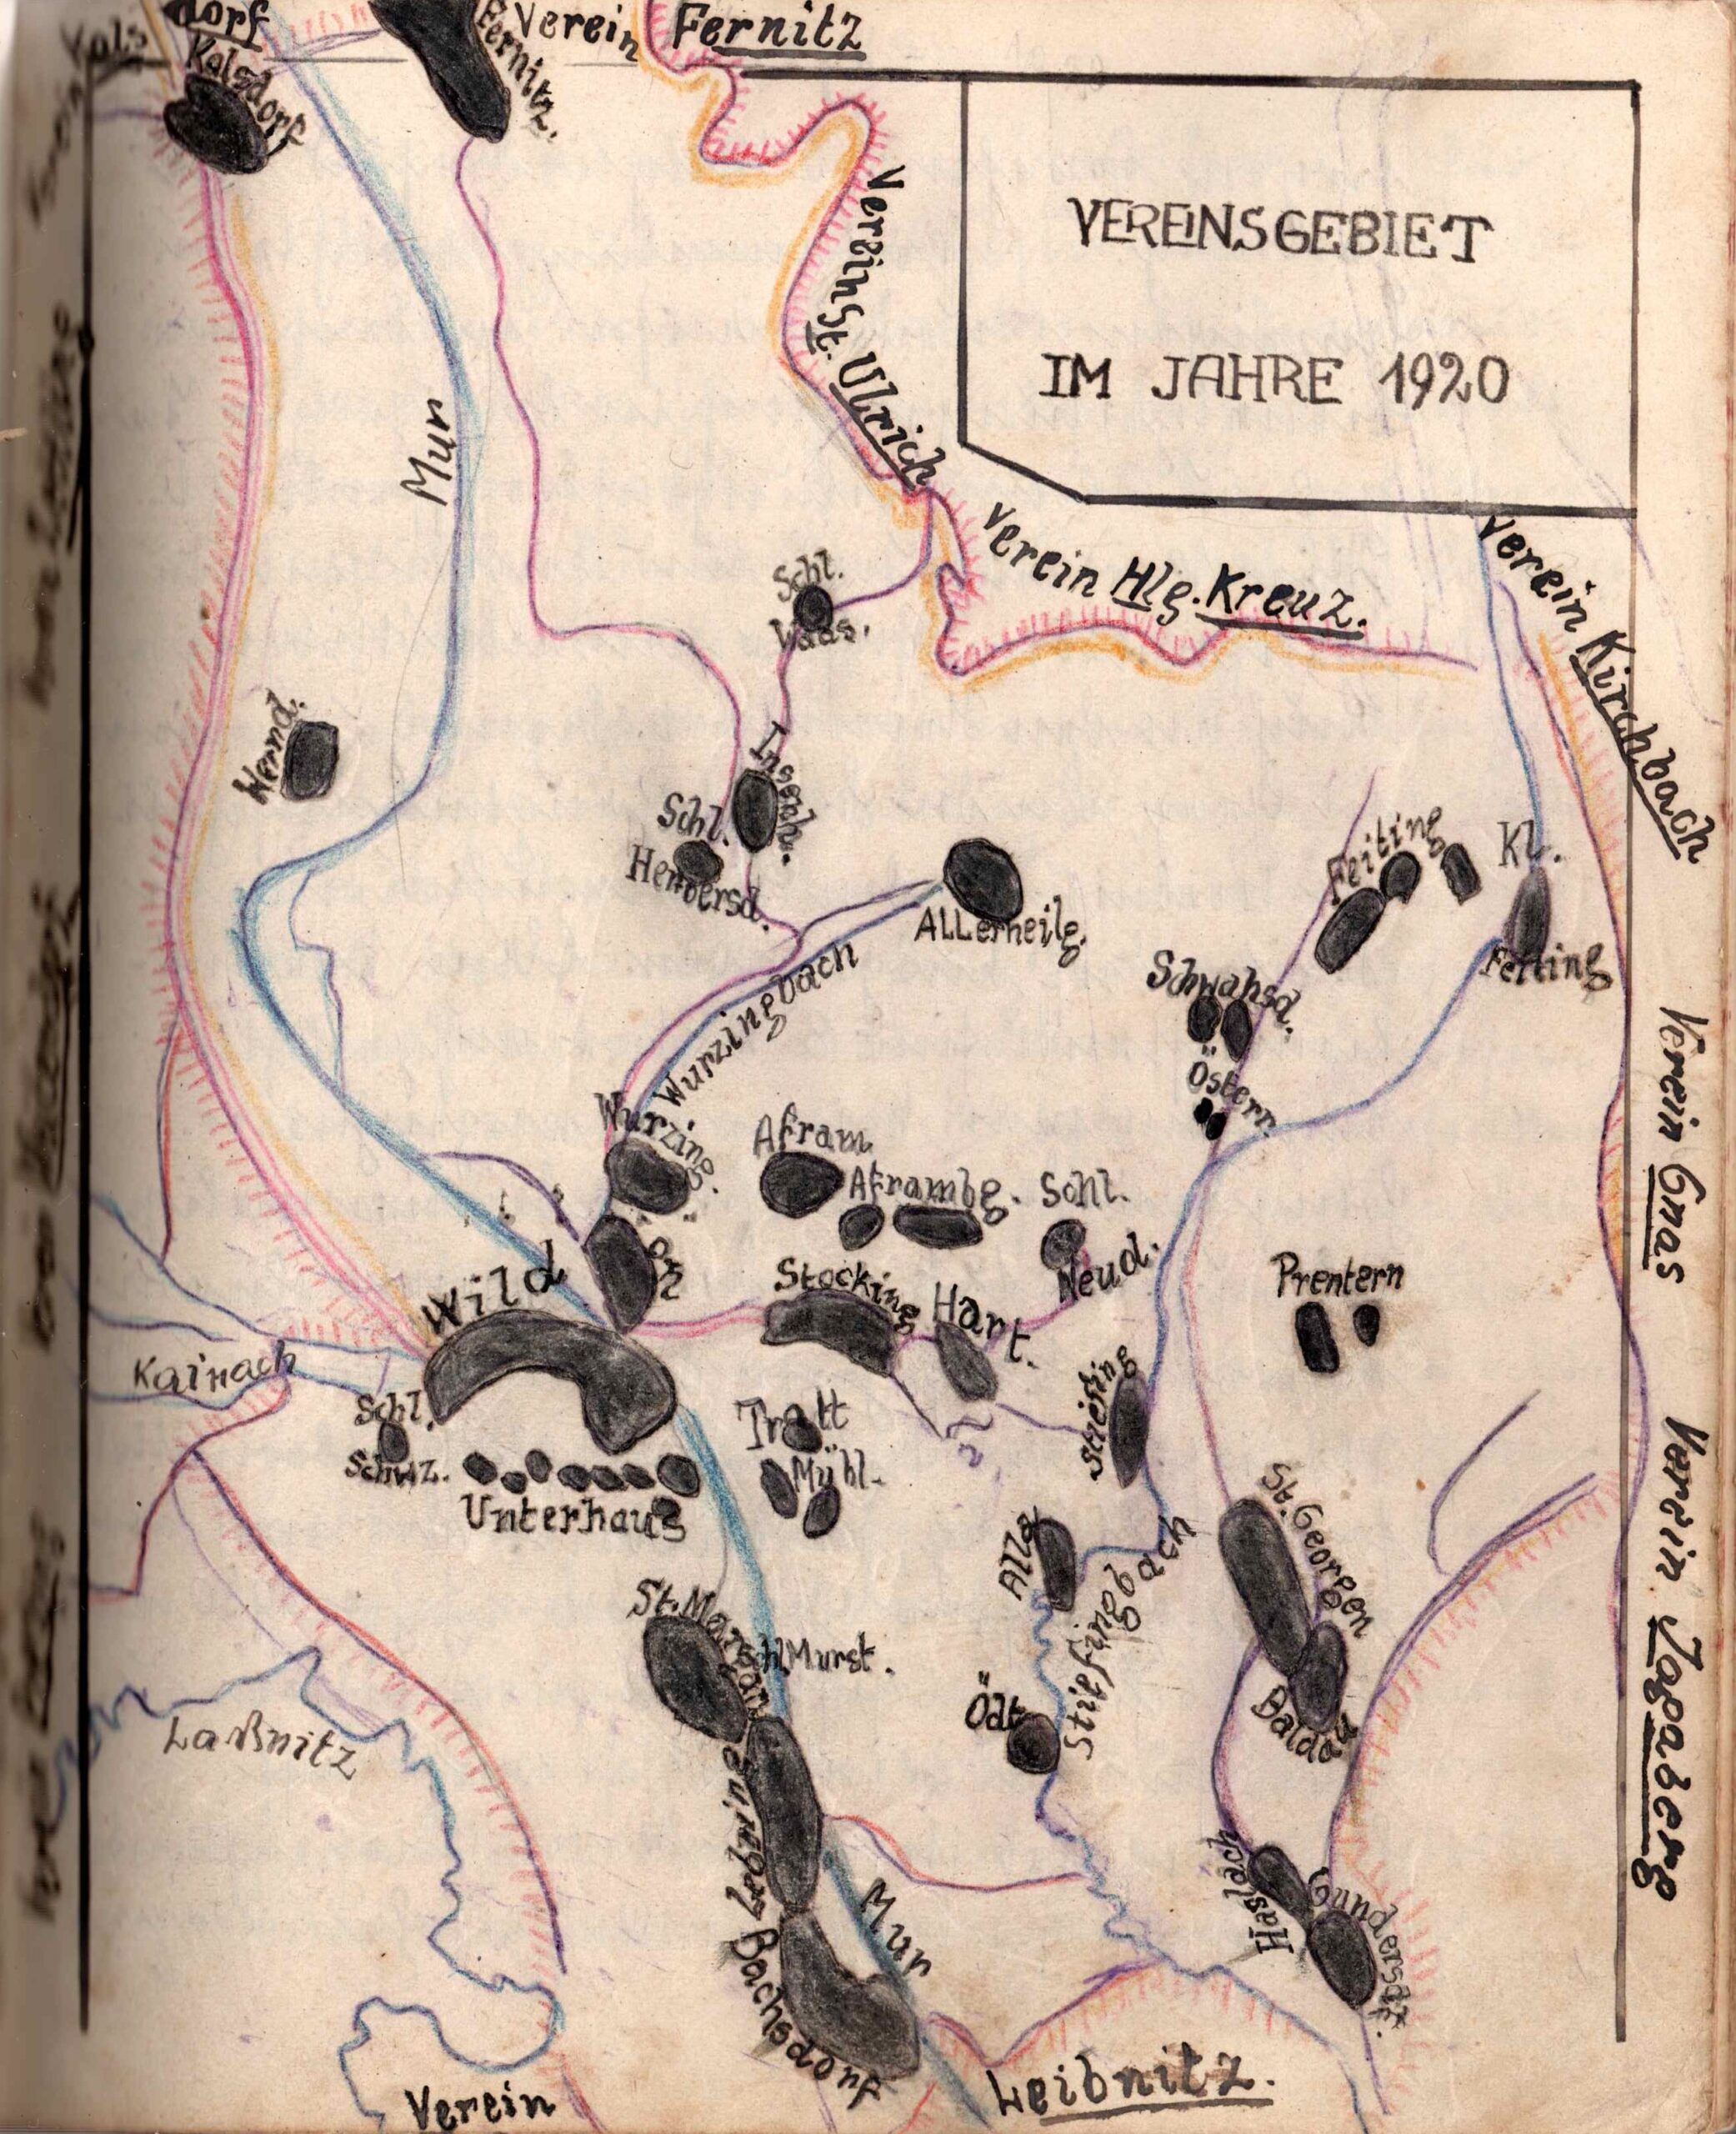 Kals
dorf
Kalsdorf
Fernitz.
Verein Fernitz
VEREINSGEBIET
IM JAHRE 1920
Verein St. Ulrich
Mur
Verein Hlg. Kreuz.
Verein Kirchbach
Schl.
Waas.
Wernd.
Insenh.
Schl.
Herbersd.
ALLerheilg.
Feiting
Kl.
Feiting
Schwahsd.
Östern.
Wurzingbach
Wurzing.
Verein Gnas
Afram
Aframbg.
Schl.
Neud.
Wild
on
Stocking
Hart.
Prentern
Kainach
Schl.
Schwz.
Unterhaus
Tratt
Mühl.
Stiefing
Verein Jagaberg
St. Georgen
Alla
Stiefingbach
St. Margan
Schl Murst.
Laßnitz
Ödt
Baldau
Haslach
Gundersdf.
Mur
Bachsdorf
Verein
Leibnitz.